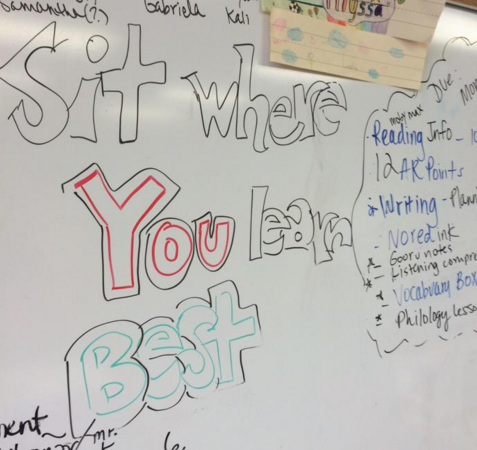 Samantha(?) Gabriela Kali
yssa
Sit where
You learn
Best
Due:
Reading Info -
12 AR Points
* Writing -
- Nored ink
* Gooru notes
* Listening compre
* Vocabulary Box
* Philology lesso
ment
mr.